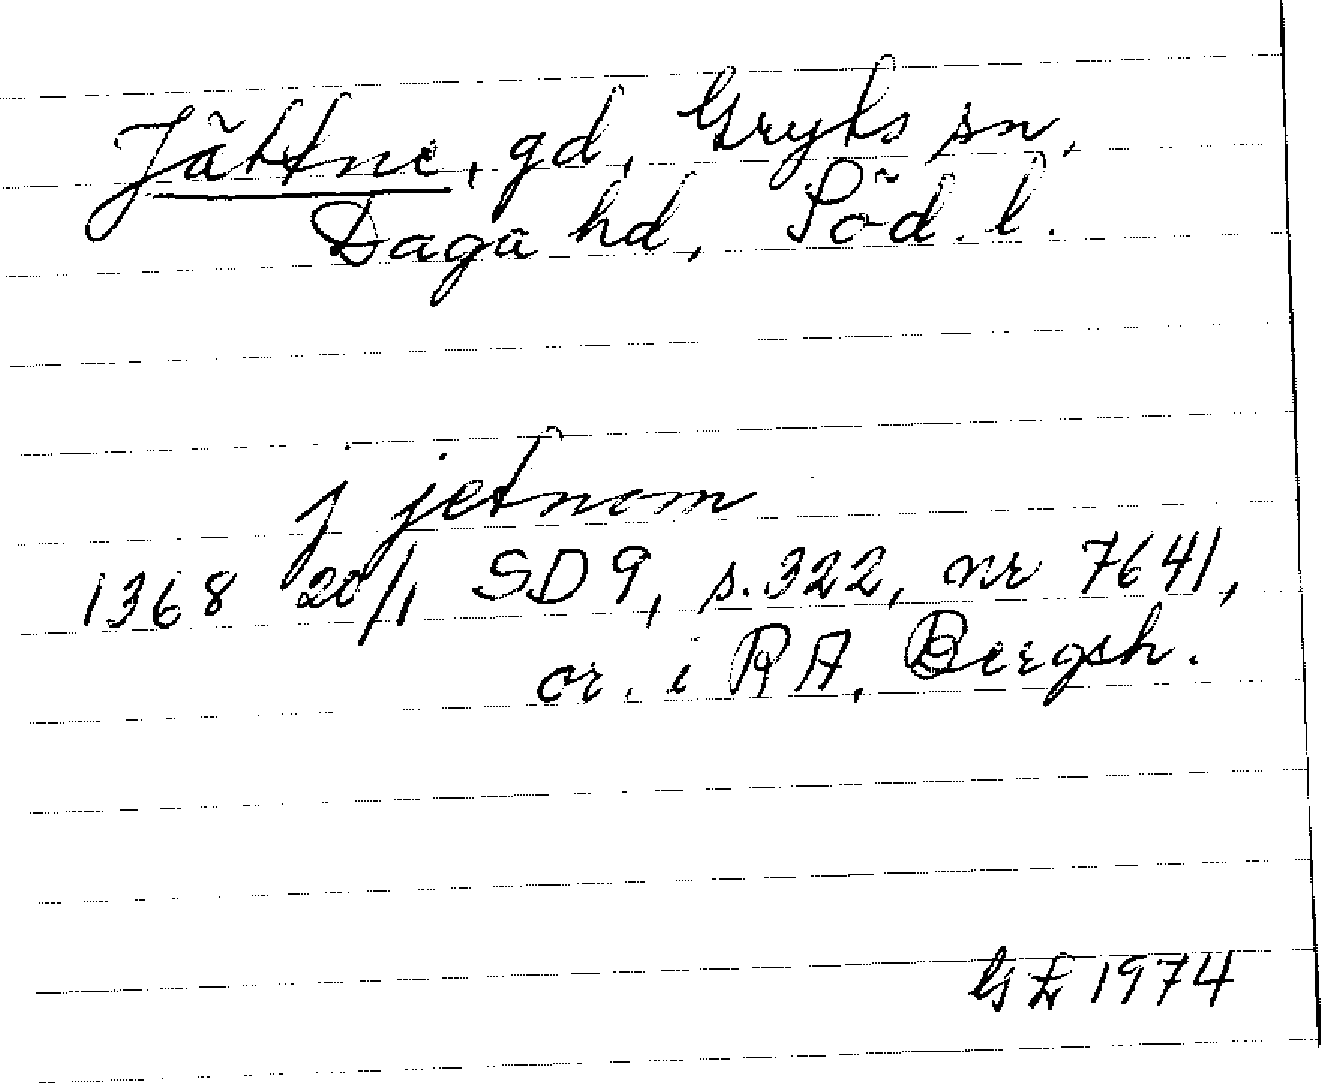 Jättne, gd, Gryts sn,
Daga hd, Söd. l.
j jetnom
1368 20/1 SD 9, s. 322, nr 7641,
or. i RA, Bergsh.
1974